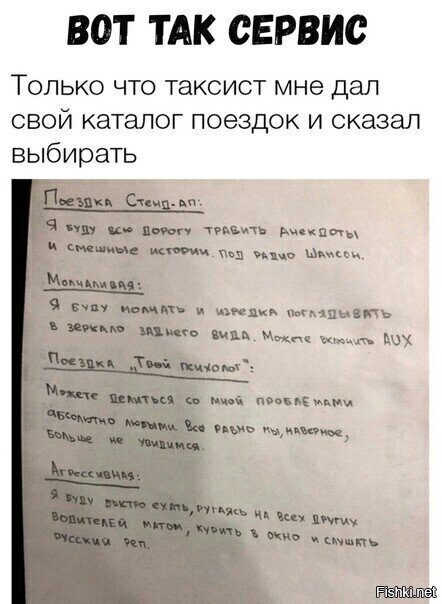 ВОТ ТАК СЕРВИС
Только что таксист мне дал
свой каталог поездок и сказал
выбирать
Поездка Стенд-ап:
Я буду всю дорогу травить анекдоты
и смешные истории. Под радио Шансон.
Молчаливая:
Я буду молчать и изредка поглядывать
в зеркало заднего вида. Можете включить AUX
Поездка „Твой психолог":
Можете делиться со мной проблемами
абсолютно любыми. Всё равно мы, наверное,
больше не увидимся.
Агрессивная:
Я буду быстро ехать, ругаясь на всех других
водителей матом, курить в окно и слушать
русский реп.
Fishki.net